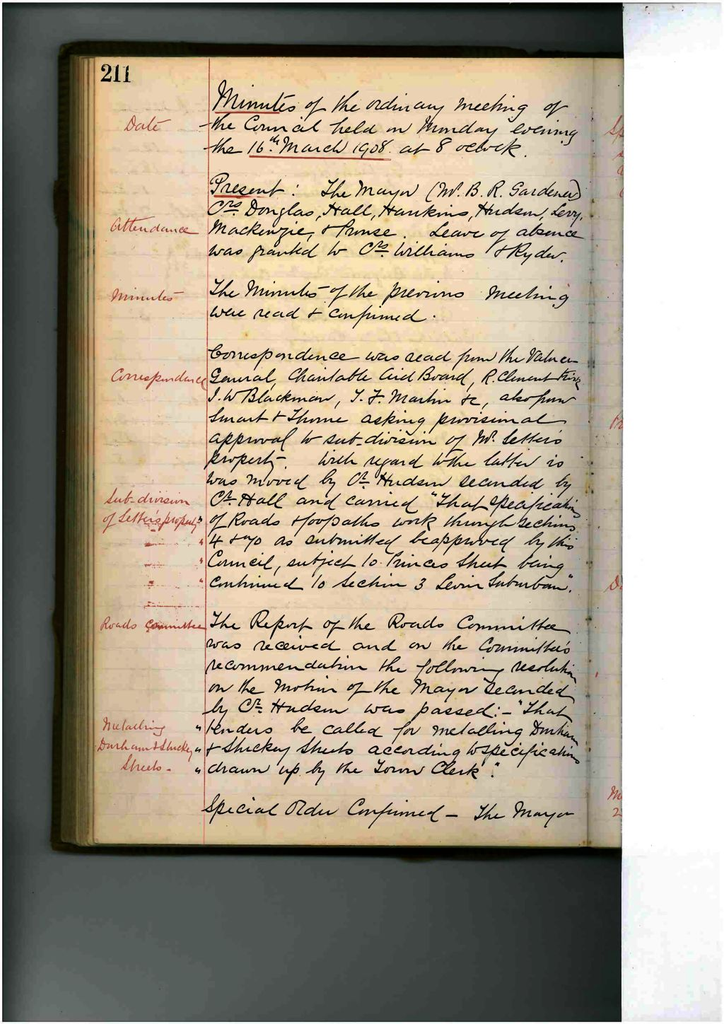 211
Minutes of the ordinary meeting of
Date
the Council held on Monday evening
the 16th March 1908 at 8 oclock.
Present: The Mayor (Mr. B. R. Gardener)
Crs Douglas, Hall, Hankins, Hudson, Levy,
Attendance
Mackenzie, & Prouse. Leave of absence
was granted to Crs. Williams & Ryder.
Minutes
The Minutes of the previous Meeting
were read & confirmed.
Correspondence was read from the Valuer
Correspondence
General, Charitable Aid Board, R. Clement
J. W Blackman, J. F. Martin &c, also from
Smart & Thorne asking provisional
approval to sub.division of Mr. Setters
property. With regard to the latter is
was moved by Cr. Hudson seconded by
Sub-division
Cr. Hall and carried "That specification
of Setter's property "
of Roads & footpaths work through sections
"
4 & 70 as submitted be approved by this
"
Council, subject to Princes Street being
"
continued to Section 3 Levin Suburban".
Roads Committee
The Report of the Roads Committee
was received and on the Committee's
recommendation the following resolution
on the Motion of the Mayor seconded
by Cr. Hudson was passed:- "That
Metalling "
tenders be called for metalling Durham
Durham & Stuckey "
& Stuckey Streets according to specifications
Streets. "
drawn up by the Town Clerk".
Special Order Confirmed - The Mayor